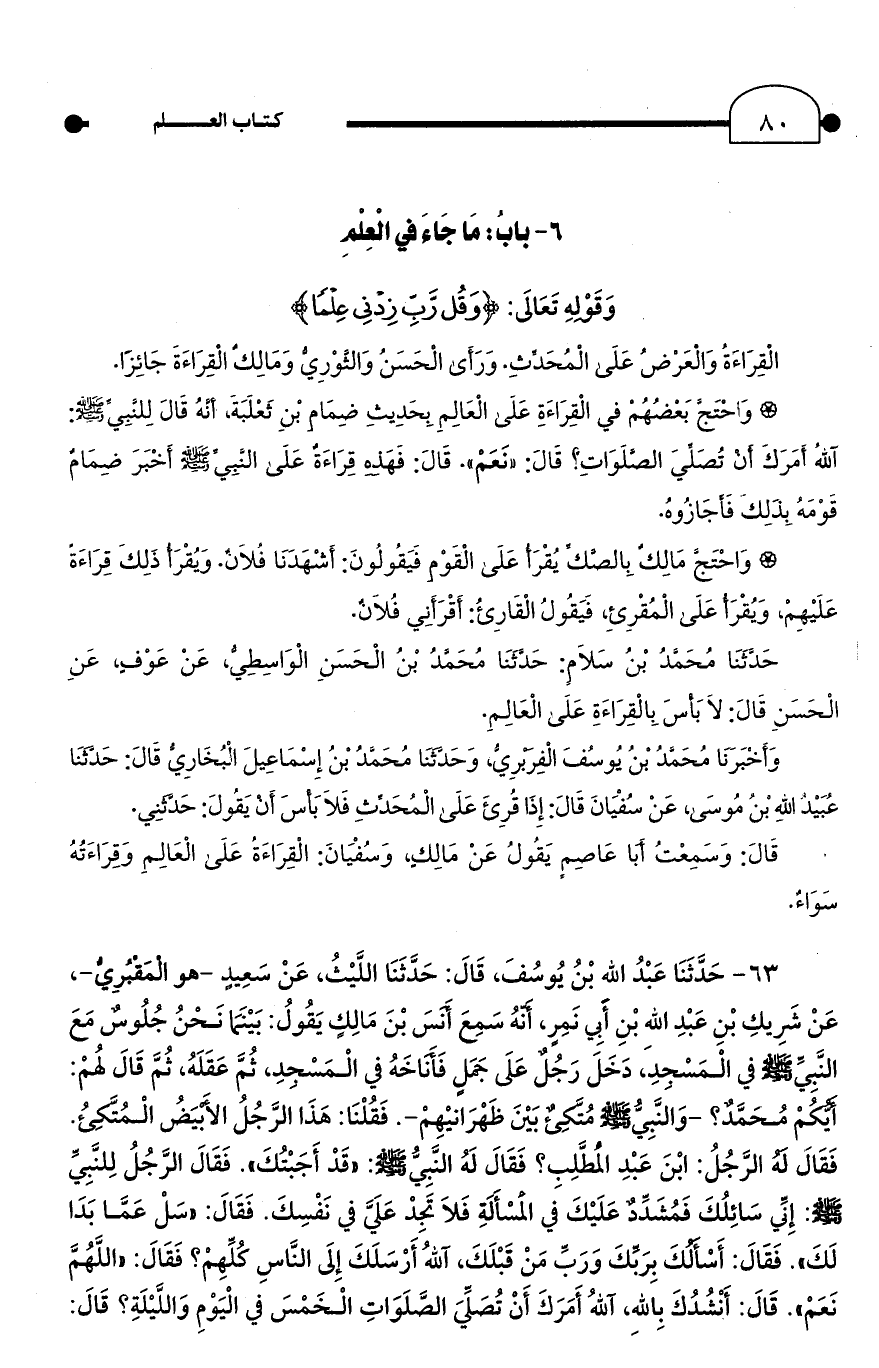 ٨٠
كتاب العلم
٦- بابُ: مَا جَاءَ فِي الْعِلْمِ
وَقَوْلِهِ تَعَالَى: ﴿وَقُل رَّبِّ زِدْنِي عِلْمًا﴾
الْقِرَاءَةُ وَالْعَرْضُ عَلَى الْمُحَدِّثِ. وَرَأَى الْحَسَنُ وَالثَّوْرِيُّ وَمَالِكٌ الْقِرَاءَةَ جَائِزَا.
⊛ وَاحْتَجَّ بَعْضُهُمْ فِي الْقِرَاءَةِ عَلَى الْعَالِمِ بِحَدِيثِ ضِمَامِ بْنِ ثَعْلَبَةَ، أَنَّهُ قَالَ لِلنَّبِيِّ ﷺ:
آللهُ أَمَرَكَ أَنْ تُصَلِّيَ الصَّلَوَاتِ؟ قَالَ: «نَعَمْ». قَالَ: فَهَذِهِ قِرَاءَةٌ عَلَى النَّبِيِّ ﷺ أَخْبَرَ ضِمَامٌ
قَوْمَهُ بِذَلِكَ فَأَجَازُوهُ.
⊛ وَاحْتَجَّ مَالِكٌ بِالصَّكِّ يُقْرَأُ عَلَى الْقَوْمِ فَيَقُولُونَ: أَشْهَدَنَا فُلاَنٌ. وَيُقْرَأُ ذَلِكَ قِرَاءَةً
عَلَيْهِمْ، وَيُقْرَأُ عَلَى الْمُقْرِئِ، فَيَقُولُ الْقَارِئُ: أَقْرَأَنِي فُلاَنٌ.
حَدَّثَنَا مُحَمَّدُ بْنُ سَلاَمٍ: حَدَّثَنَا مُحَمَّدُ بْنُ الْحَسَنِ الْوَاسِطِيُّ، عَنْ عَوْفٍ، عَنِ
الْحَسَنِ قَالَ: لاَ بَأْسَ بِالْقِرَاءَةِ عَلَى الْعَالِمِ.
وَأَخْبَرَنَا مُحَمَّدُ بْنُ يُوسُفَ الْفِرَبْرِيُّ، وَحَدَّثَنَا مُحَمَّدُ بْنُ إِسْمَاعِيلَ الْبُخَارِيُّ قَالَ: حَدَّثَنَا
عُبَيْدُ اللهِ بْنُ مُوسَى، عَنْ سُفْيَانَ قَالَ: إِذَا قُرِئَ عَلَى الْمُحَدِّثِ فَلاَ بَأْسَ أَنْ يَقُولَ: حَدَّثَنِي.
قَالَ: وَسَمِعْتُ أَبَا عَاصِمٍ يَقُولُ عَنْ مَالِكٍ، وَسُفْيَانَ: الْقِرَاءَةُ عَلَى الْعَالِمِ وَقِرَاءَتُهُ
سَوَاءٌ.
٦٣- حَدَّثَنَا عَبْدُ اللهِ بْنُ يُوسُفَ، قَالَ: حَدَّثَنَا اللَّيْثُ، عَنْ سَعِيدٍ -هو الْمَقْبُرِيُّ-،
عَنْ شَرِيكِ بْنِ عَبْدِ اللهِ بْنِ أَبِي نَمِرٍ، أَنَّهُ سَمِعَ أَنَسَ بْنَ مَالِكٍ يَقُولُ: بَيْنَمَا نَحْنُ جُلُوسٌ مَعَ
النَّبِيِّ ﷺ فِي الْمَسْجِدِ، دَخَلَ رَجُلٌ عَلَى جَمَلٍ فَأَنَاخَهُ فِي الْمَسْجِدِ، ثُمَّ عَقَلَهُ، ثُمَّ قَالَ لَهُمْ:
أَيُّكُمْ مُحَمَّدٌ؟ -وَالنَّبِيُّ ﷺ مُتَّكِئٌ بَيْنَ ظَهْرَانَيْهِمْ-. فَقُلْنَا: هَذَا الرَّجُلُ الأَبْيَضُ الْمُتَّكِئُ.
فَقَالَ لَهُ الرَّجُلُ: ابْنَ عَبْدِ الْمُطَّلِبِ؟ فَقَالَ لَهُ النَّبِيُّ ﷺ: «قَدْ أَجَبْتُكَ». فَقَالَ الرَّجُلُ لِلنَّبِيِّ
ﷺ: إِنِّي سَائِلُكَ فَمُشَدِّدٌ عَلَيْكَ فِي الْمَسْأَلَةِ فَلاَ تَجِدْ عَلَيَّ فِي نَفْسِكَ. فَقَالَ: «سَلْ عَمَّا بَدَا
لَكَ». فَقَالَ: أَسْأَلُكَ بِرَبِّكَ وَرَبِّ مَنْ قَبْلَكَ، آللهُ أَرْسَلَكَ إِلَى النَّاسِ كُلِّهِمْ؟ فَقَالَ: «اللَّهُمَّ
نَعَمْ». قَالَ: أَنْشُدُكَ بِاللهِ، آللهُ أَمَرَكَ أَنْ تُصَلِّيَ الصَّلَوَاتِ الْخَمْسَ فِي الْيَوْمِ وَاللَّيْلَةِ؟ قَالَ: